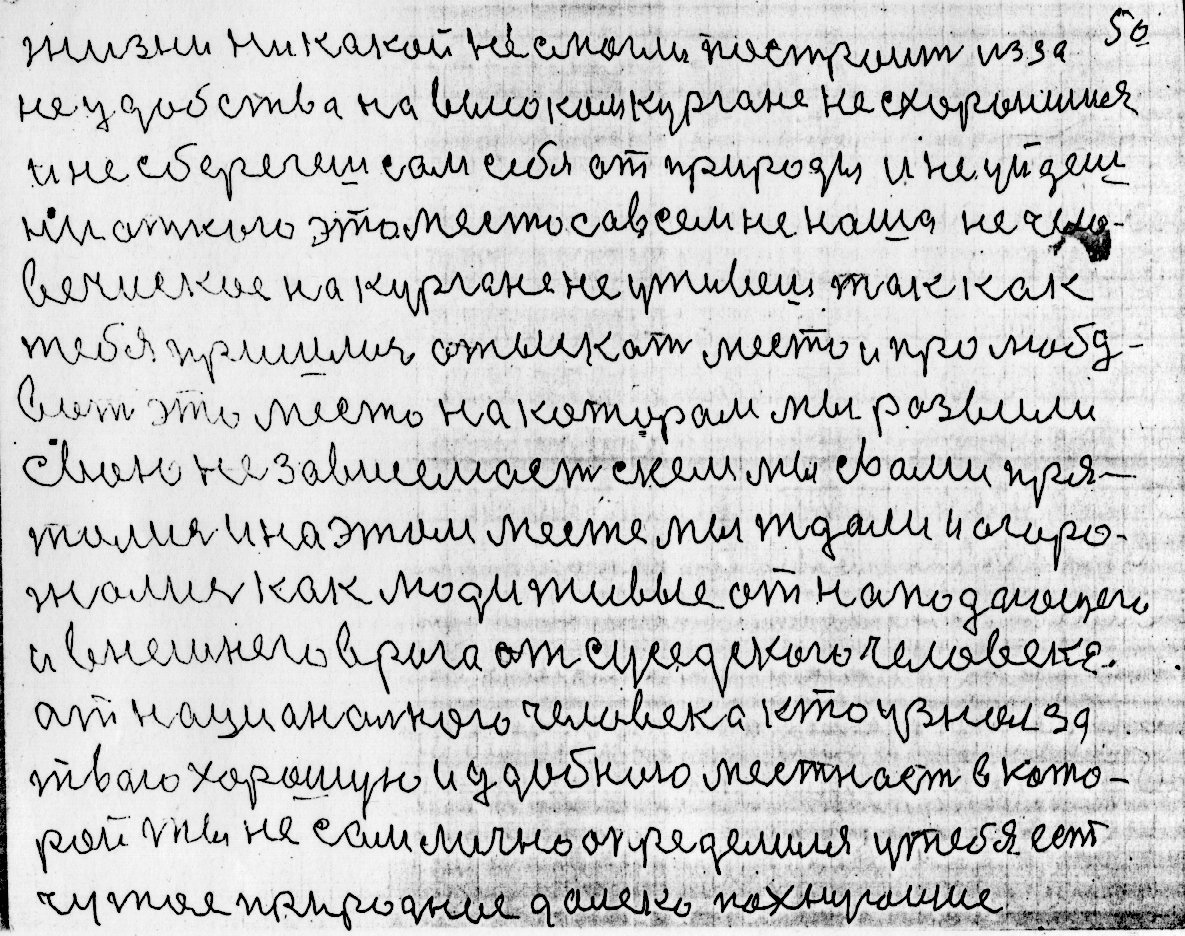 50
жизни никакой не смогли построит из за
неудобства на высоком кургане не схоронишся
и не сберегеш сам себя от природы и не уйдеш
ни откого это место савсем не наша не чело-
вечиское на кургане не уживеш так как
тебя пришлис отыскат место и про любд-
вот это место на котором мы развили
свою не зависемаст скем мы свами пря-
талися и на этом месте мы ждали и огоро-
жалися как люди живые от нападающего
и внешнего врага от суседского человека.
ат национального человека кто узнал за
тваго хорошую и удобного местнаст в кото-
рой ты не сам лично определился у тебя ест
чужое природное далеко